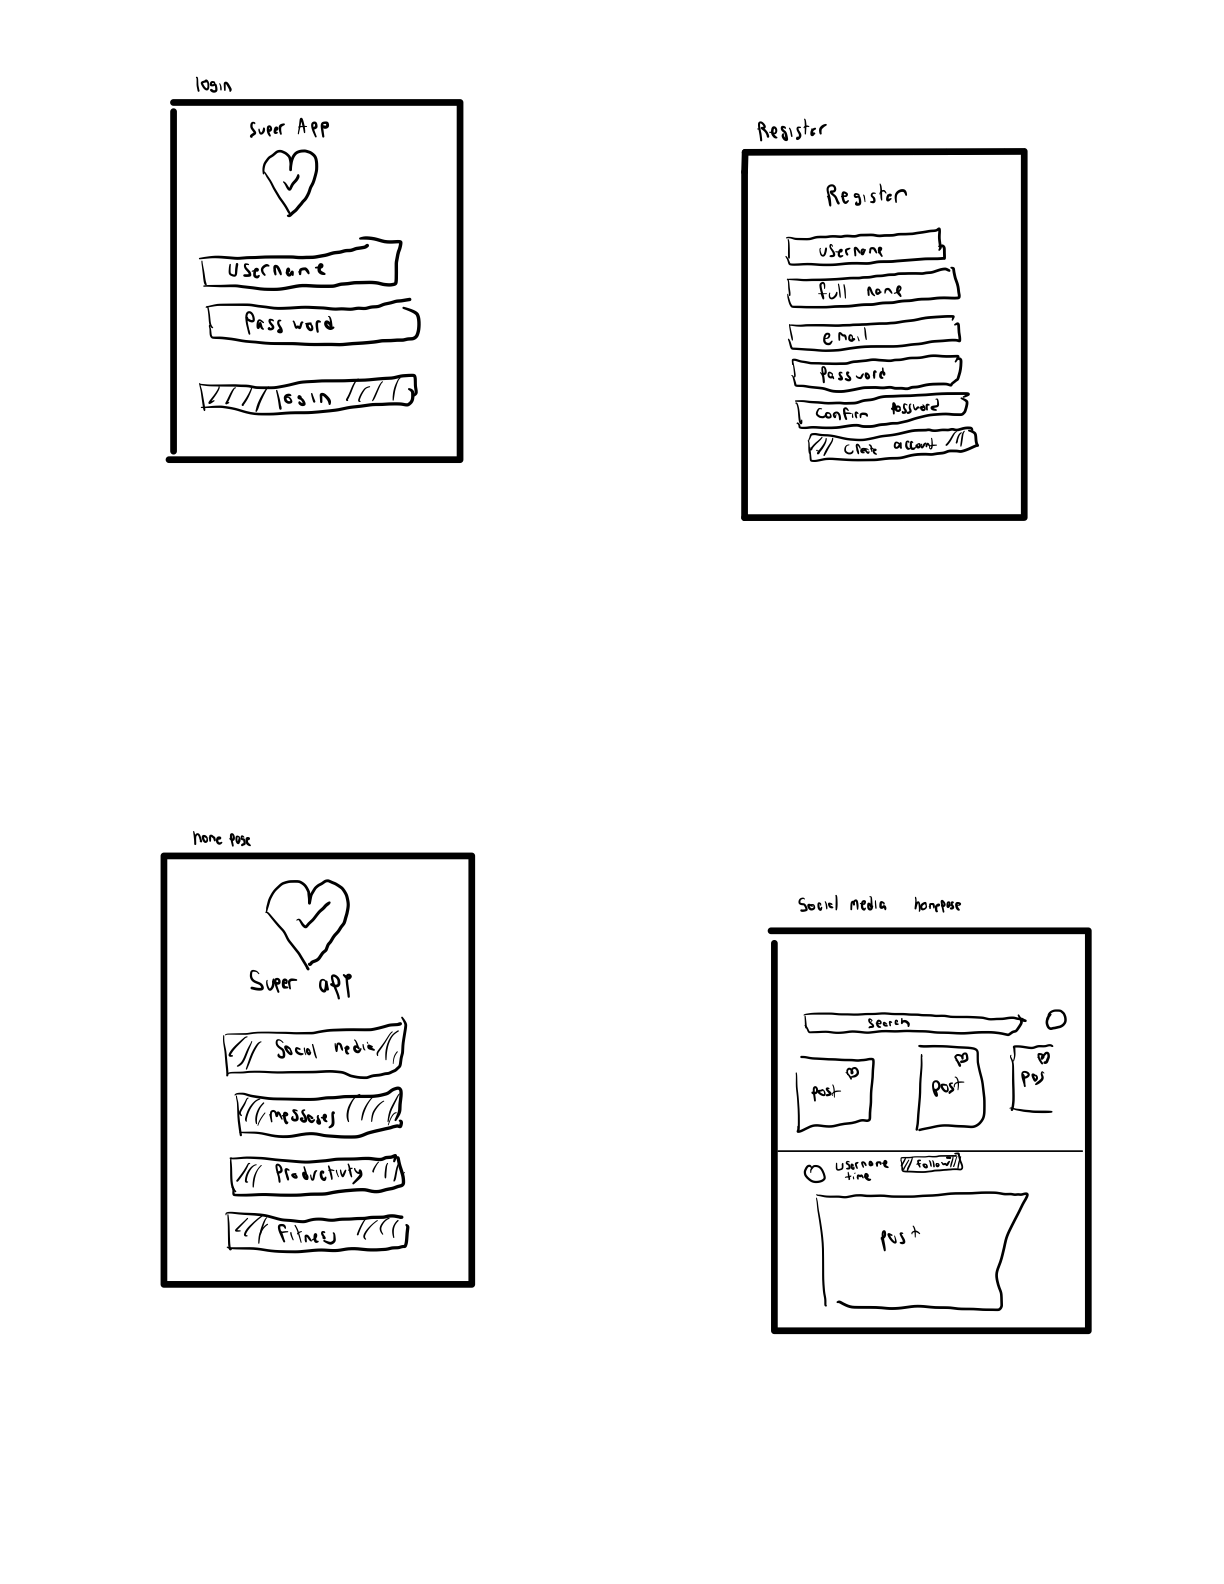 login
Super App
Username
Password
login
Register
Register
username
full name
email
Password
Confirm Password
Create account
home page
Super app
Social media
messages
Productivity
fitness
Social media homepage
search
post
post
pos
username
time
follow
post